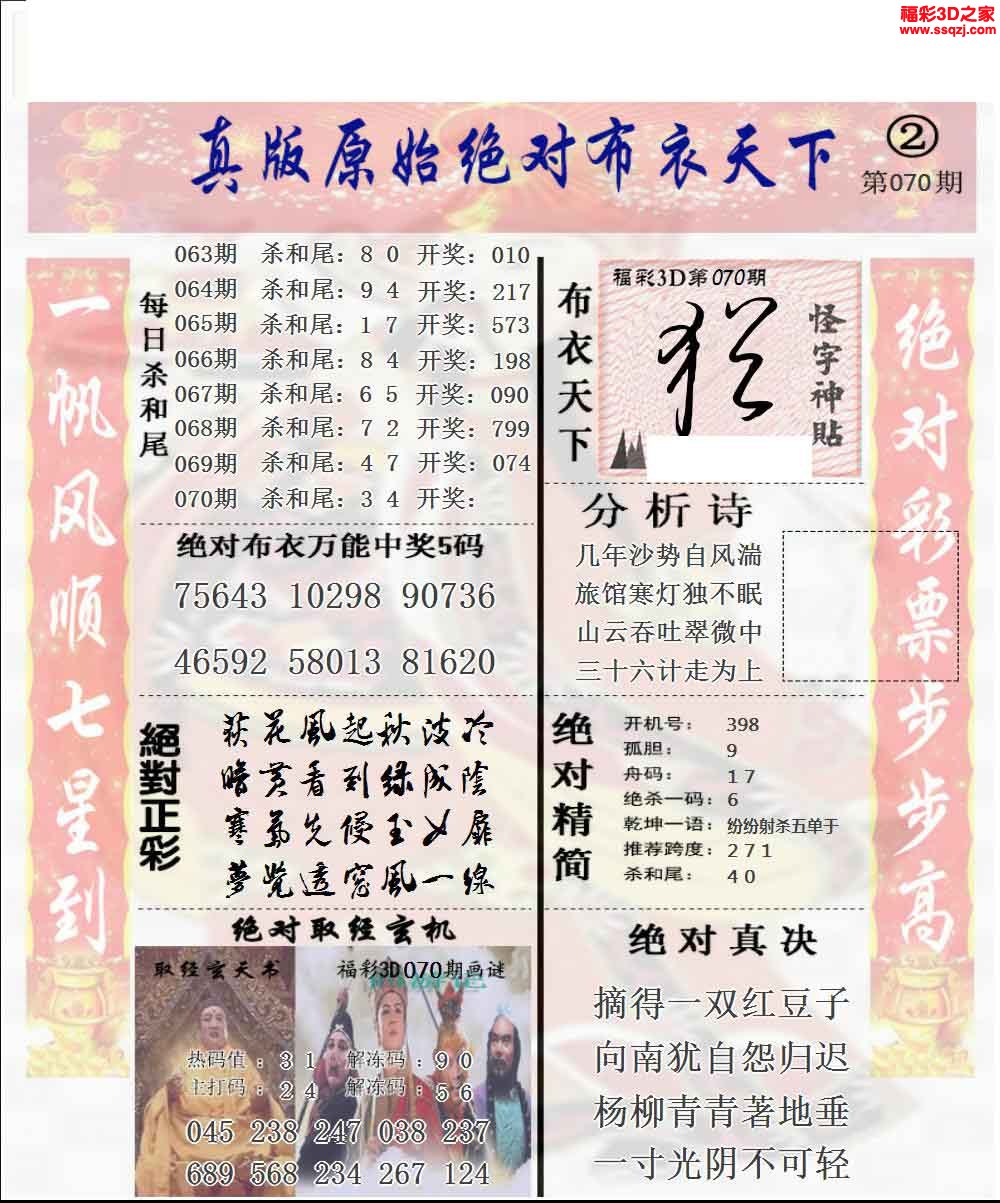 福彩3D之家
www.ssqzj.com
真版原始绝对布衣天下
②
第070期
一帆风顺七星到
每日杀和尾
063期 杀和尾：8 0 开奖：010
064期 杀和尾：9 4 开奖：217
065期 杀和尾：1 7 开奖：573
066期 杀和尾：8 4 开奖：198
067期 杀和尾：6 5 开奖：090
068期 杀和尾：7 2 开奖：799
069期 杀和尾：4 7 开奖：074
070期 杀和尾：3 4 开奖：
绝对布衣万能中奖5码
75643 10298 90736
46592 58013 81620
絕對正彩
荻花風起秋波冷
暗黄看到绿成陰
寒氣先侵玉女扉
夢覺透窓風一線
绝对取经玄机
取经玄天书
福彩3D070期画谜
热码值：31 解冻码：90
主打码：24 解冻码：56
045 238 247 038 237
689 568 234 267 124
布衣天下
福彩3D第070期
怪字神贴
分析诗
几年沙势自风湍
旅馆寒灯独不眠
山云吞吐翠微中
三十六计走为上
绝对精简
开机号： 398
孤胆： 9
舟码： 17
绝杀一码：6
乾坤一语：纷纷射杀五单于
推荐跨度：271
杀和尾： 40
绝对真决
摘得一双红豆子
向南犹自怨归迟
杨柳青青著地垂
一寸光阴不可轻
绝对彩票步步高